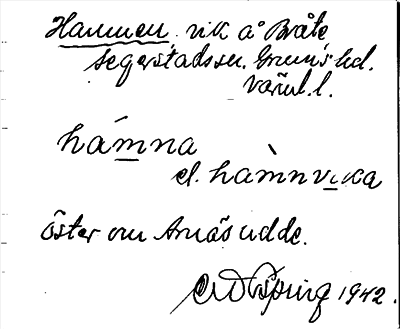 Hamnen vik å Bråte
Segerstads sn. Grums hd.
Värml. l.
hámna
el. hàmnvika
öster om Arnäs udde.
1942.